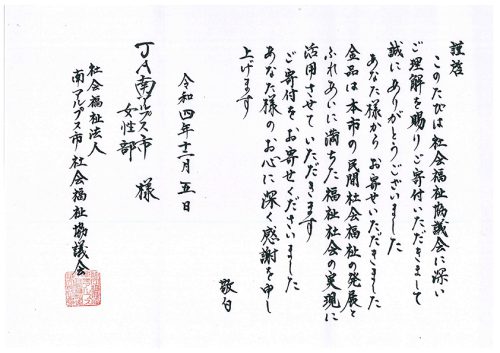 謹啓
このたびは社会福祉協議会に深い
ご理解を賜りご寄付いただきまして
誠にありがとうございました
あなた様からお寄せいただきました
金品は本市の民間社会福祉の発展と
ふれあいに満ちた福祉社会の実現に
活用させていただきます
ご寄付をお寄せくださいました
あなた様のお心に深く感謝を申し
上げます
敬白
令和四年十二月五日
JA南アルプス市
女性部 様
社会福祉法人
南アルプス市社会福祉協議会